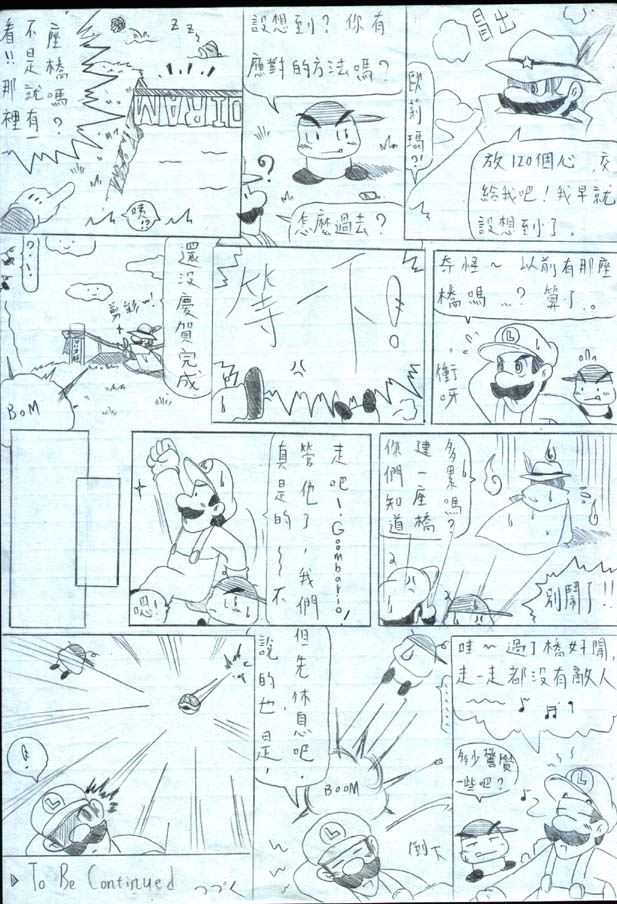 冒出
歐莉瑪?!
放120個心, 交
給我吧! 我早就
設想到了.
設想到? 你有
應對的方法嗎?
?
怎麼過去?
看!! 那裡
不是就有一
座橋嗎?
Z Z Z
DIRAM
咦!?
奇怪~ 以前有那座
橋嗎...? 算了..
衝呀
等下!
還沒慶賀完成
剪彩~!
?!
BOM
你們知道
建一座橋
多累嗎?
別鬧了!!
真是的~~不
管他了,我們
走吧! Goombario!
嗯!
哇~過了橋好閒,
走一走都沒有敵人
~~~
多少警覺
一些吧?
說的也是,
但先休息吧.
BOOM
倒下
!
To Be Continued つづく